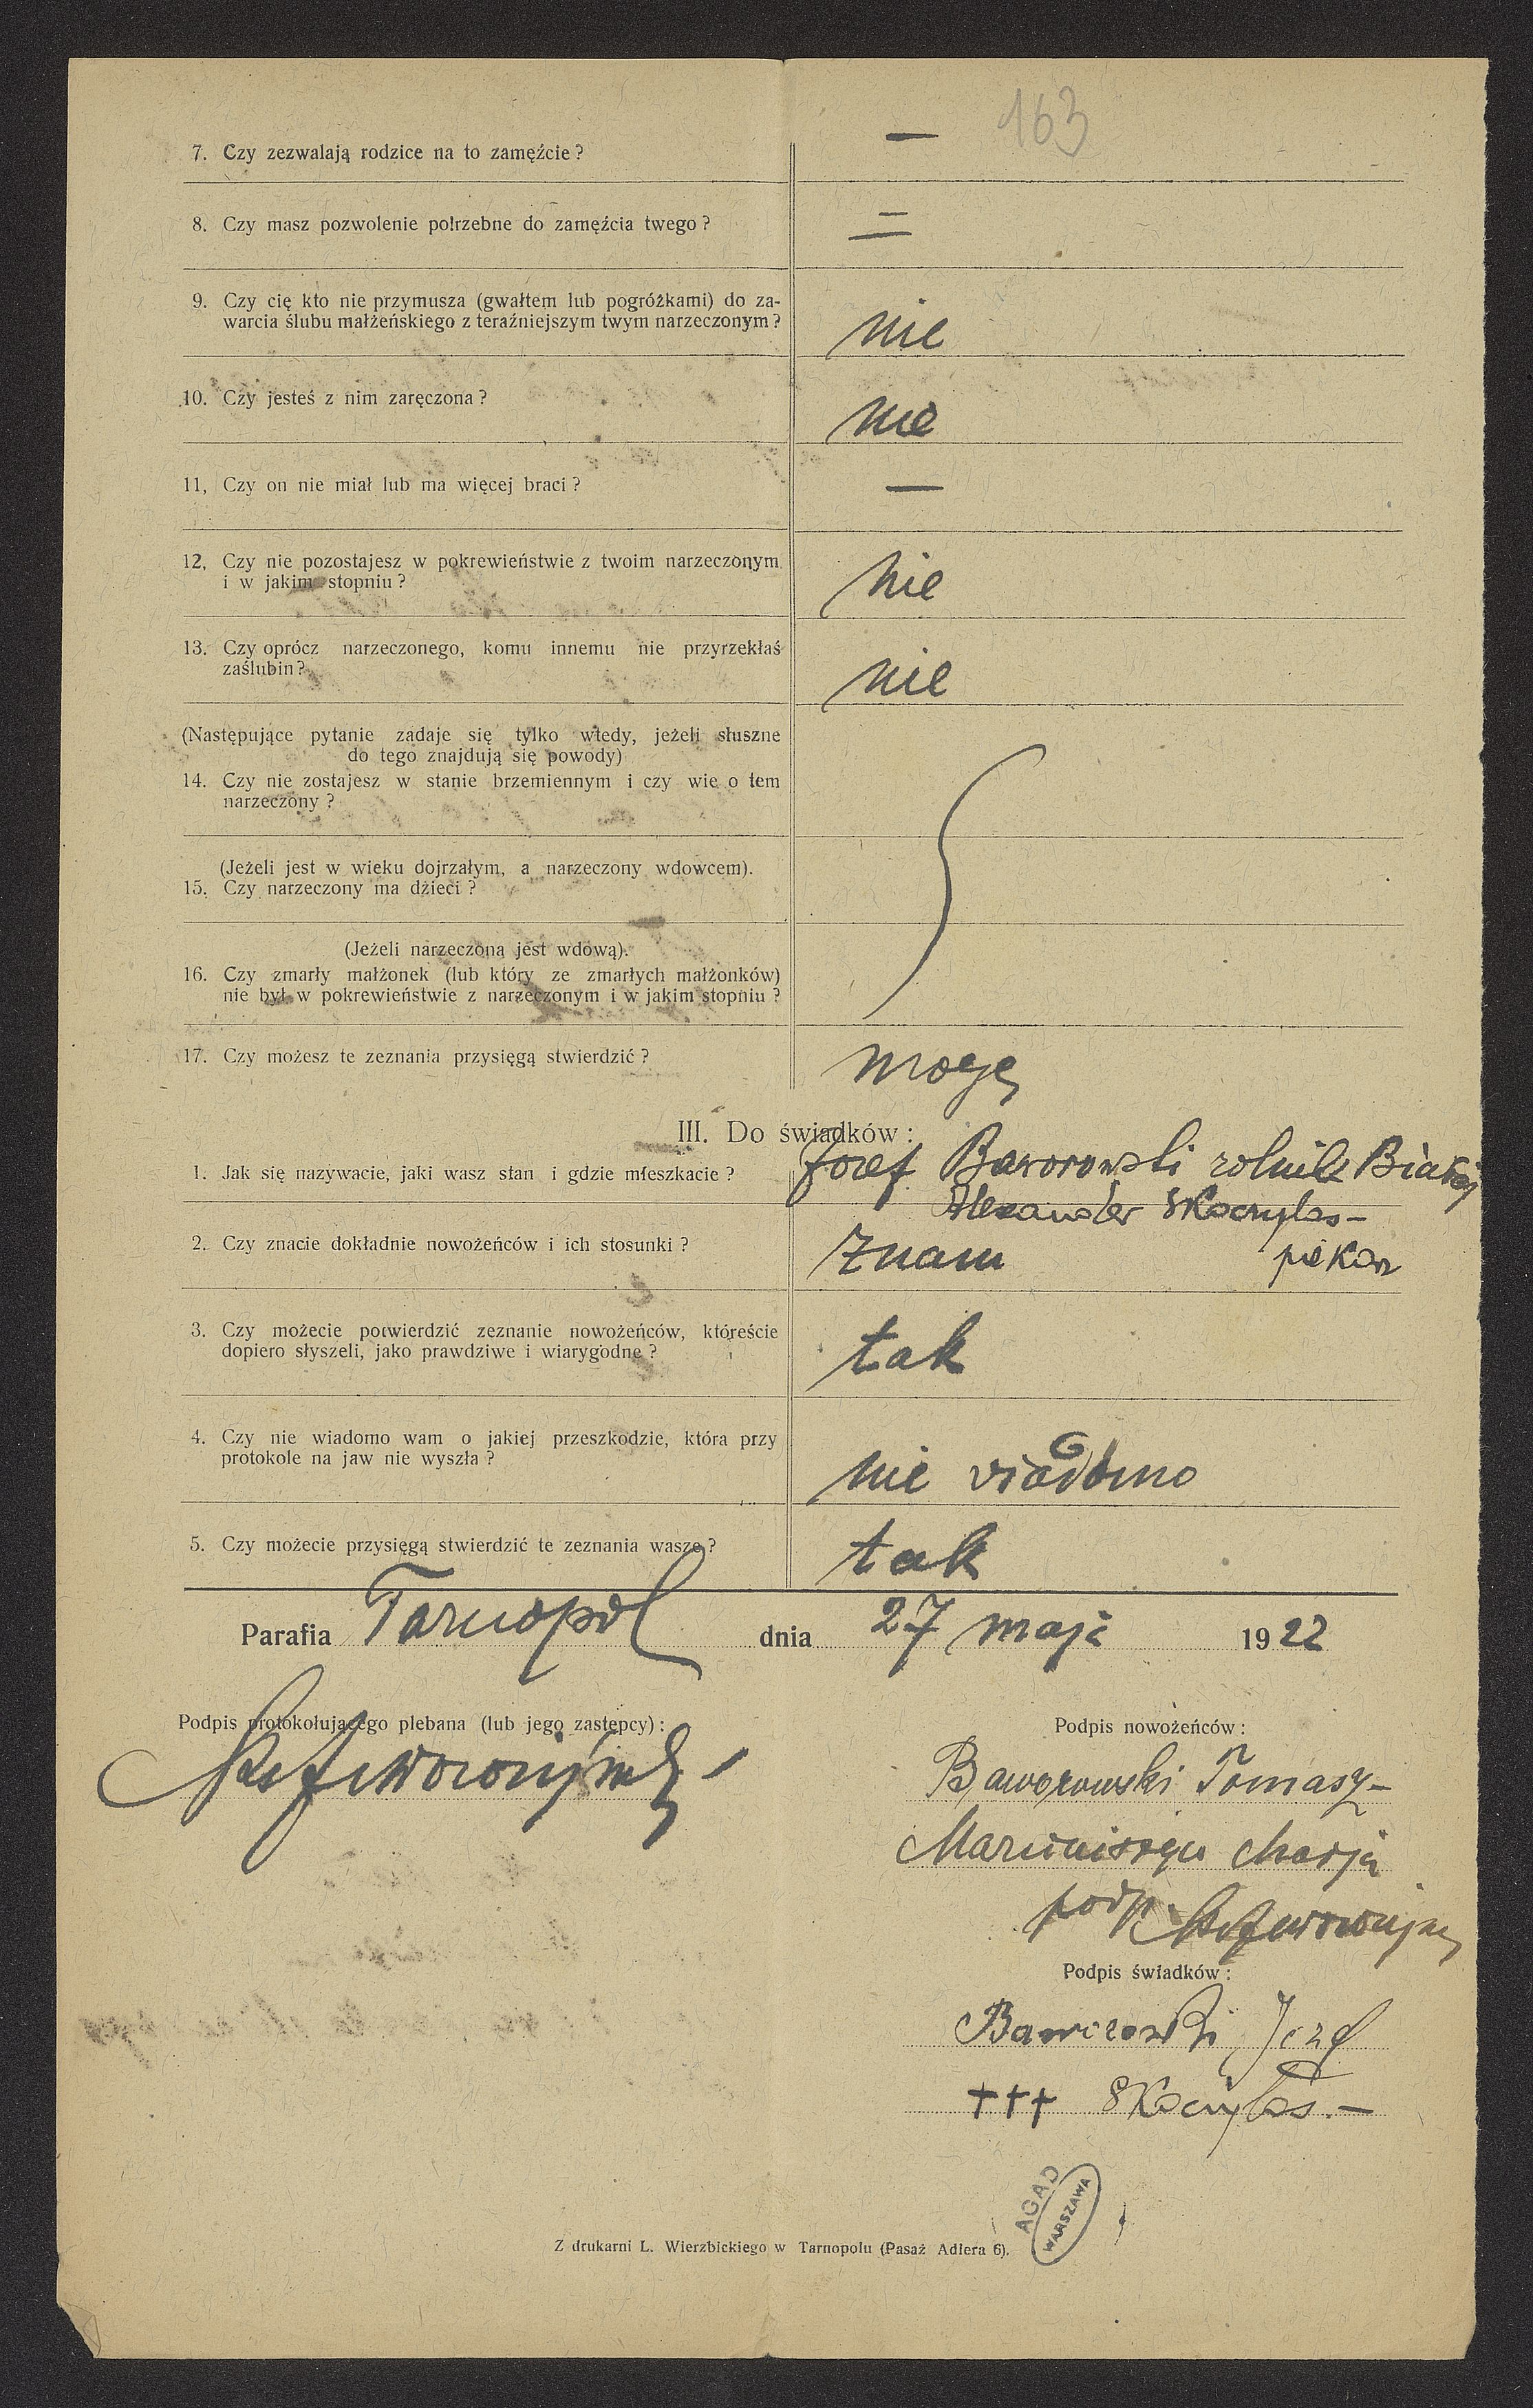 163
7. Czy zezwalają rodzice na to zamęźcie ? —
8. Czy masz pozwolenie potrzebne do zamęźcia twego ? =
9. Czy cię kto nie przymusza (gwałtem lub pogróżkami) do za-
warcia ślubu małżeńskiego z teraźniejszym twym narzeczonym ? nie
10. Czy jesteś z nim zaręczona ? nie
11, Czy on nie miał lub ma więcej braci ? —
12, Czy nie pozostajesz w pokrewieństwie z twoim narzeczonym
i w jakim stopniu ? nie
13. Czy oprócz narzeczonego, komu innemu nie przyrzekłaś
zaślubin? nie
(Następujące pytanie zadaje się tylko wtedy, jeżeli słuszne
do tego znajdują się powody)
14. Czy nie zostajesz w stanie brzemiennym i czy wie o tem
narzeczony ?
(Jeżeli jest w wieku dojrzałym, a narzeczony wdowcem).
15. Czy narzeczony ma dzieci ?
(Jeżeli narzeczona jest wdową).
16. Czy zmarły małżonek (lub który ze zmarłych małżonków)
nie był w pokrewieństwie z narzeczonym i w jakim stopniu ?
17. Czy możesz te zeznania przysięgą stwierdzić ? mogę
III. Do świadków :
1. Jak się nazywacie, jaki wasz stan i gdzie mieszkacie ? Józef Baworowski rolnik z Białej
Alexander Skoczylas —
piekarz
2. Czy znacie dokładnie nowożeńców i ich stosunki ? Znam
3. Czy możecie potwierdzić zeznanie nowożeńców, któreście
dopiero słyszeli, jako prawdziwe i wiarygodne ? tak
4. Czy nie wiadomo wam o jakiej przeszkodzie, która przy
protokole na jaw nie wyszła ? nie wiadomo
5. Czy możecie przysięgą stwierdzić te zeznania wasze ? tak
Parafia Tarnopol dnia 27 maja 1922
Podpis protokołującego plebana (lub jego zastępcy) :
Podpis nowożeńców :
Baworowski Tomasz —
Marja
podp.
Podpis świadków :
Baworowski Józef
+++ Skoczylas. —
AGAD
WARSZAWA
Z drukarni L. Wierzbickiego w Tarnopolu (Pasaż Adlera 6).